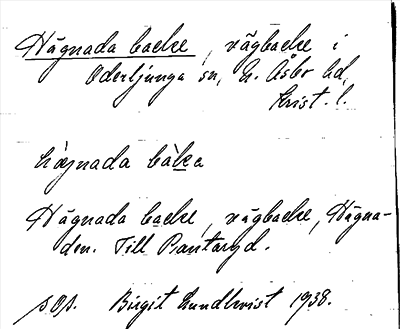 Hägnada backe, vägbacke i
Oderljunga sn, N. Åsbo hd,
Krist. l.
hægnada bàka
Hägnada backe, vägbacke, Hägna-
den. Till Bantaryd.
sOp. Birgit Lundkvist 1938.